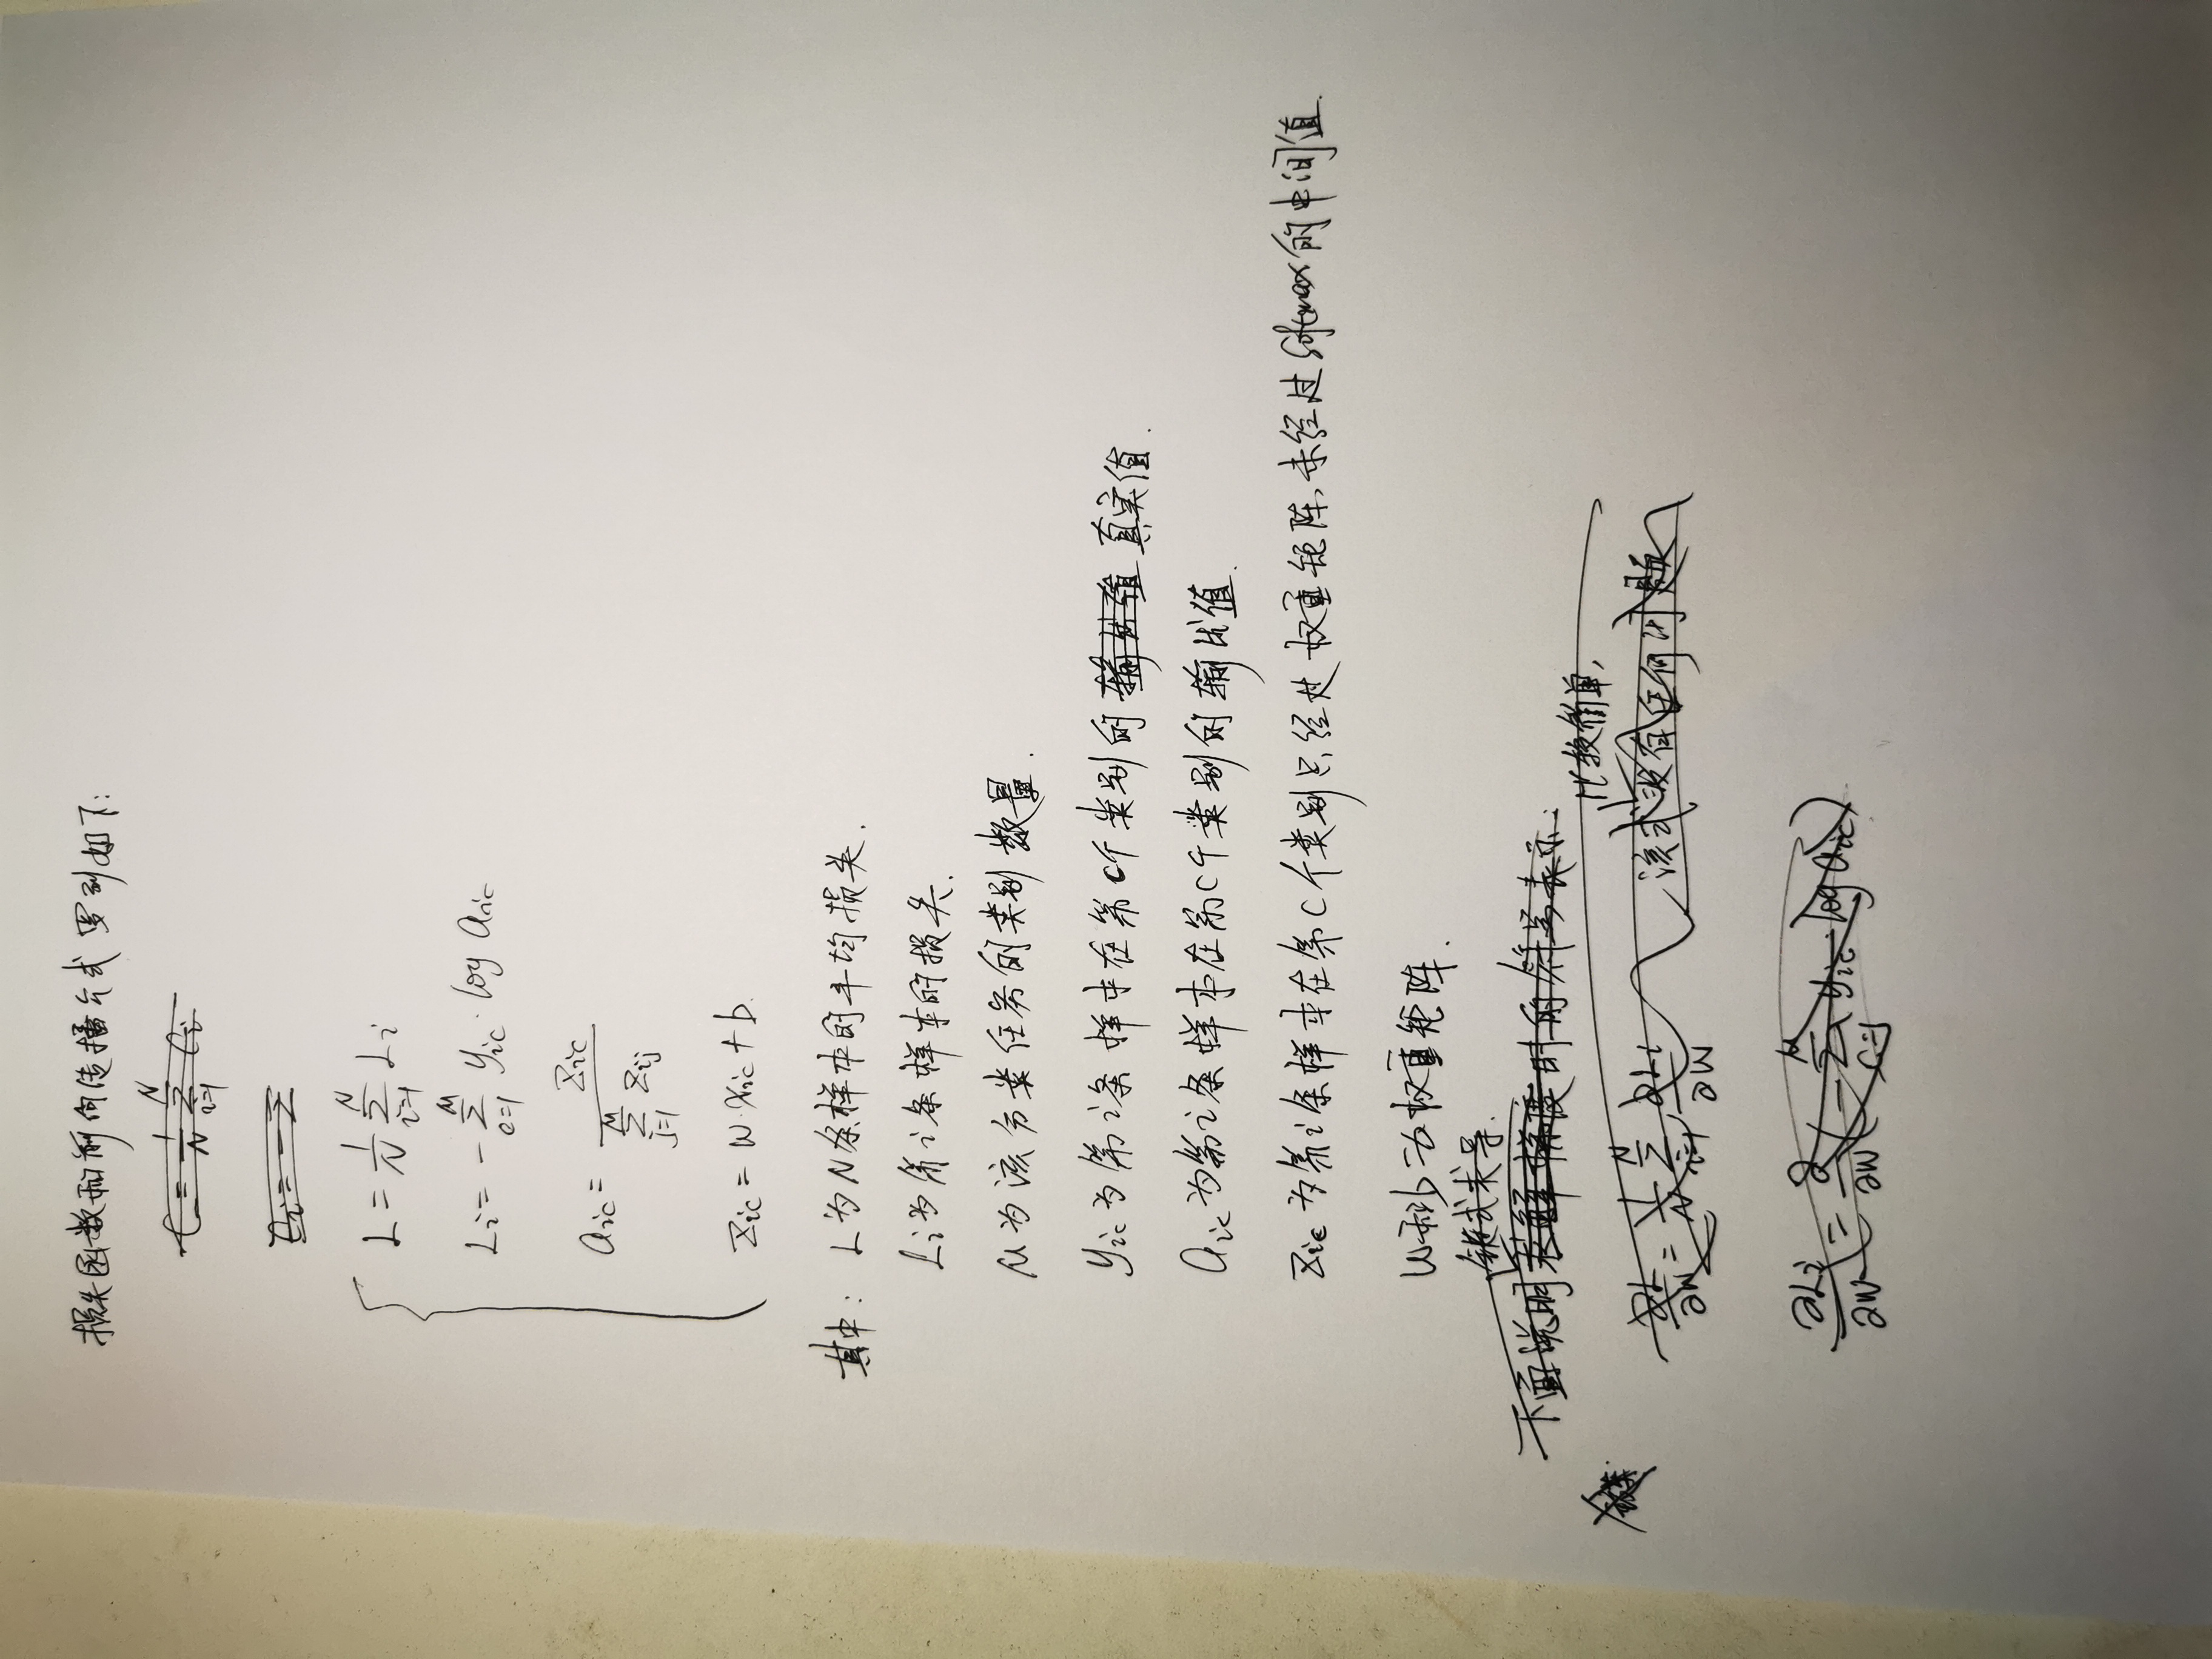 损失函数和前向传播公式罗列如下:
C = 1/N Σ_{i=1}^{N} C_i
C_i = -Σ
L = 1/N Σ_{i=1}^{N} L_i
L_i = -Σ_{c=1}^{M} y_ic · log a_ic
a_ic = z_ic / Σ_{j=1}^{M} z_ij
z_ic = w·x_ic + b.
其中: L为N条样本的平均损失.
L_i为第i条样本的损失.
M为该分类任务的类别数量.
y_ic为第i条样本在第c个类别的输出值 真实值.
a_ic为第i条样本在第c个类别的输出值.
z_ic为第i条样本在第c个类别只经过权重矩阵、未经过softmax的中间值.
w和b为权重矩阵.
链式求导.
下面说明求解梯度时的符号表示:
比较简单,
∂L/∂w = 1/N Σ_{i=1}^{N} ∂L_i/∂w 该式没有任何问题
∂L_i/∂w = ∂/∂w (-Σ_{c=1}^{M} y_ic · log a_ic)